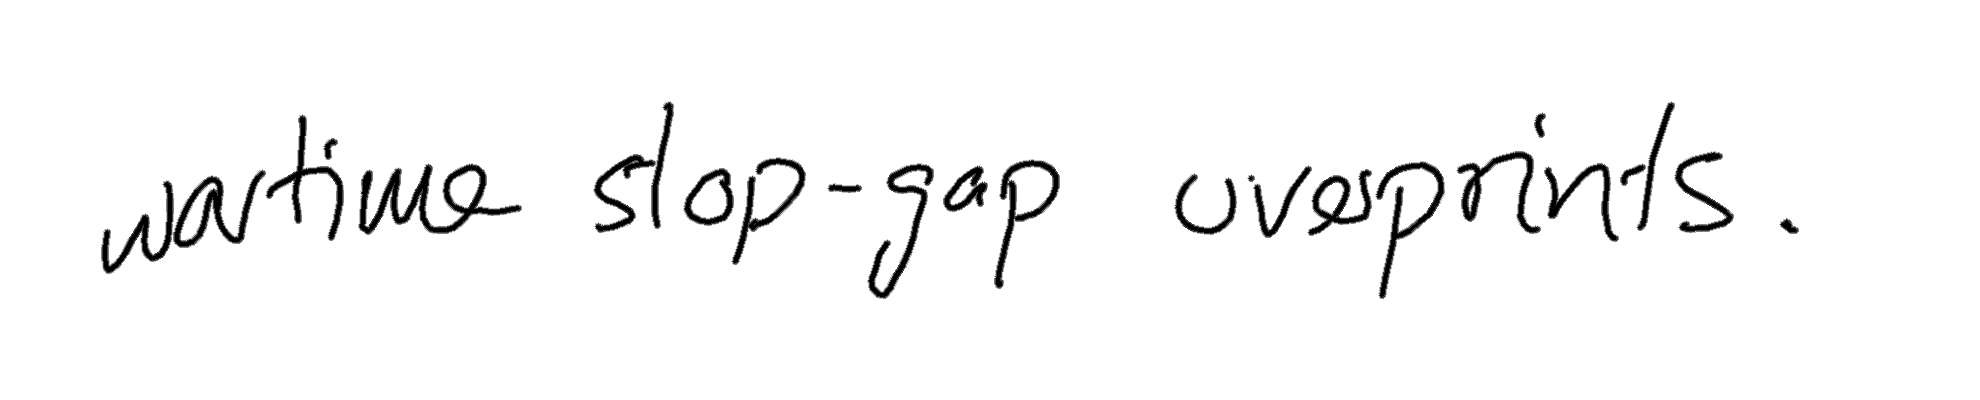 wartime stop-gap overprints.